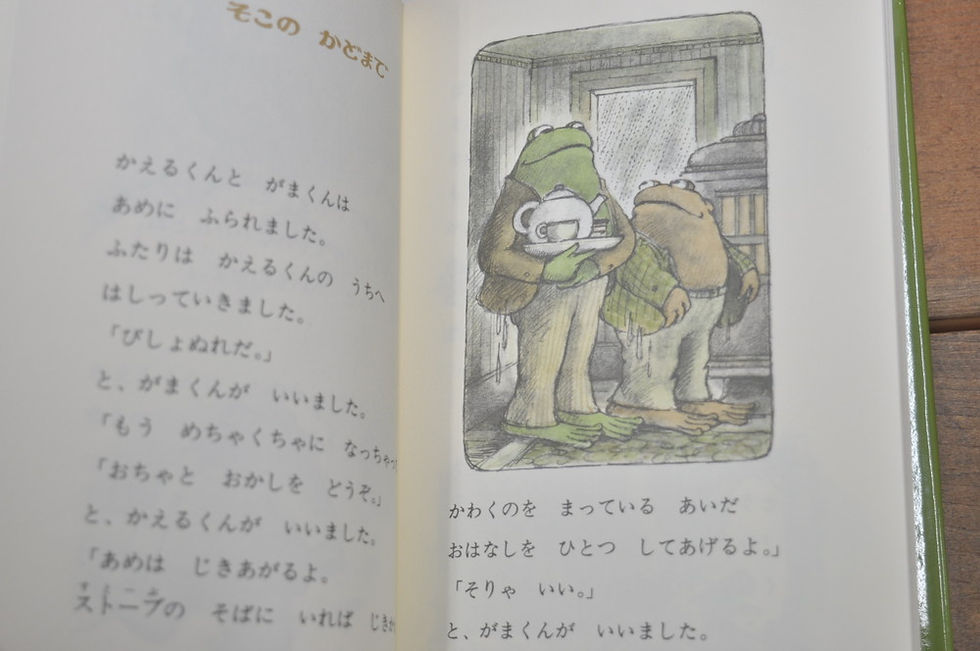 そこの かどまで
かえるくんと がまくんは
あめに ふられました。
ふたりは かえるくんの うちへ
はしっていきました。
「びしょぬれだ。」
と、がまくんが いいました。
「もう めちゃくちゃに なっちゃっ
「おちゃと おかしを どうぞ。」
と、かえるくんが いいました。
「あめは じきあがるよ。
ストーブの そばに いれば じき
かわくのを まっている あいだ
おはなしを ひとつ してあげるよ。」
「そりゃ いい。」
と、がまくんが いいました。